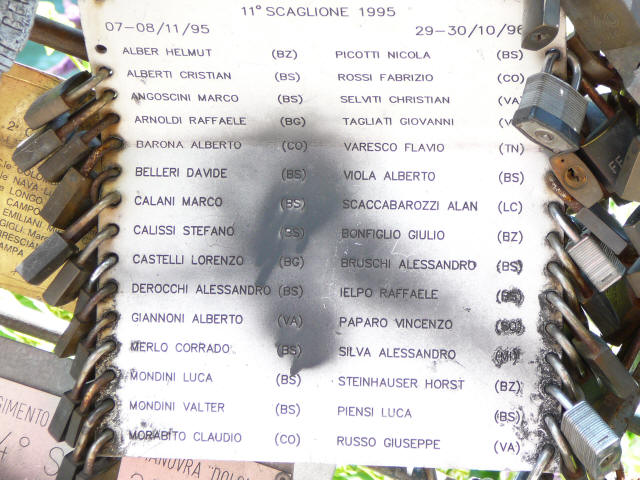 11° SCAGLIONE 1995
07-08/11/95 29-30/10/96
ALBER HELMUT (BZ) PICOTTI NICOLA (BS)
ALBERTI CRISTIAN (BS) ROSSI FABRIZIO (CO)
ANGOSCINI MARCO (BS) SELVITI CHRISTIAN (VA)
ARNOLDI RAFFAELE (BG) TAGLIATI GIOVANNI
BARONA ALBERTO (CO) VARESCO FLAVIO (TN)
BELLERI DAVIDE (BS) VIOLA ALBERTO (BS)
CALANI MARCO (BS) SCACCABAROZZI ALAN (LC)
CALISSI STEFANO (BS) BONFIGLIO GIULIO (BZ)
CASTELLI LORENZO (BG) BRUSCHI ALESSANDRO (BS)
DEROCCHI ALESSANDRO (BS) IELPO RAFFAELE (BS)
GIANNONI ALBERTO (VA) PAPARO VINCENZO
MERLO CORRADO (BS) SILVA ALESSANDRO
MONDINI LUCA (BS) STEINHAUSER HORST (BZ)
MONDINI VALTER (BS) PIENSI LUCA (BS)
MORABITO CLAUDIO (CO) RUSSO GIUSEPPE (VA)
NAVA
LONGO
CAMPO
EMILIANI
GIMENTO
4° S